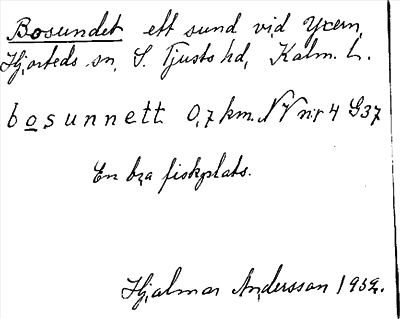 Bosundet ett sund vid Yxern,
Hjorteds sn, S. Tjusts hd, Kalm. L.
bosunnett 0,7 km. NV nr 4 G37
En bra fiskplats.
Hjalmar Andersson 1959.